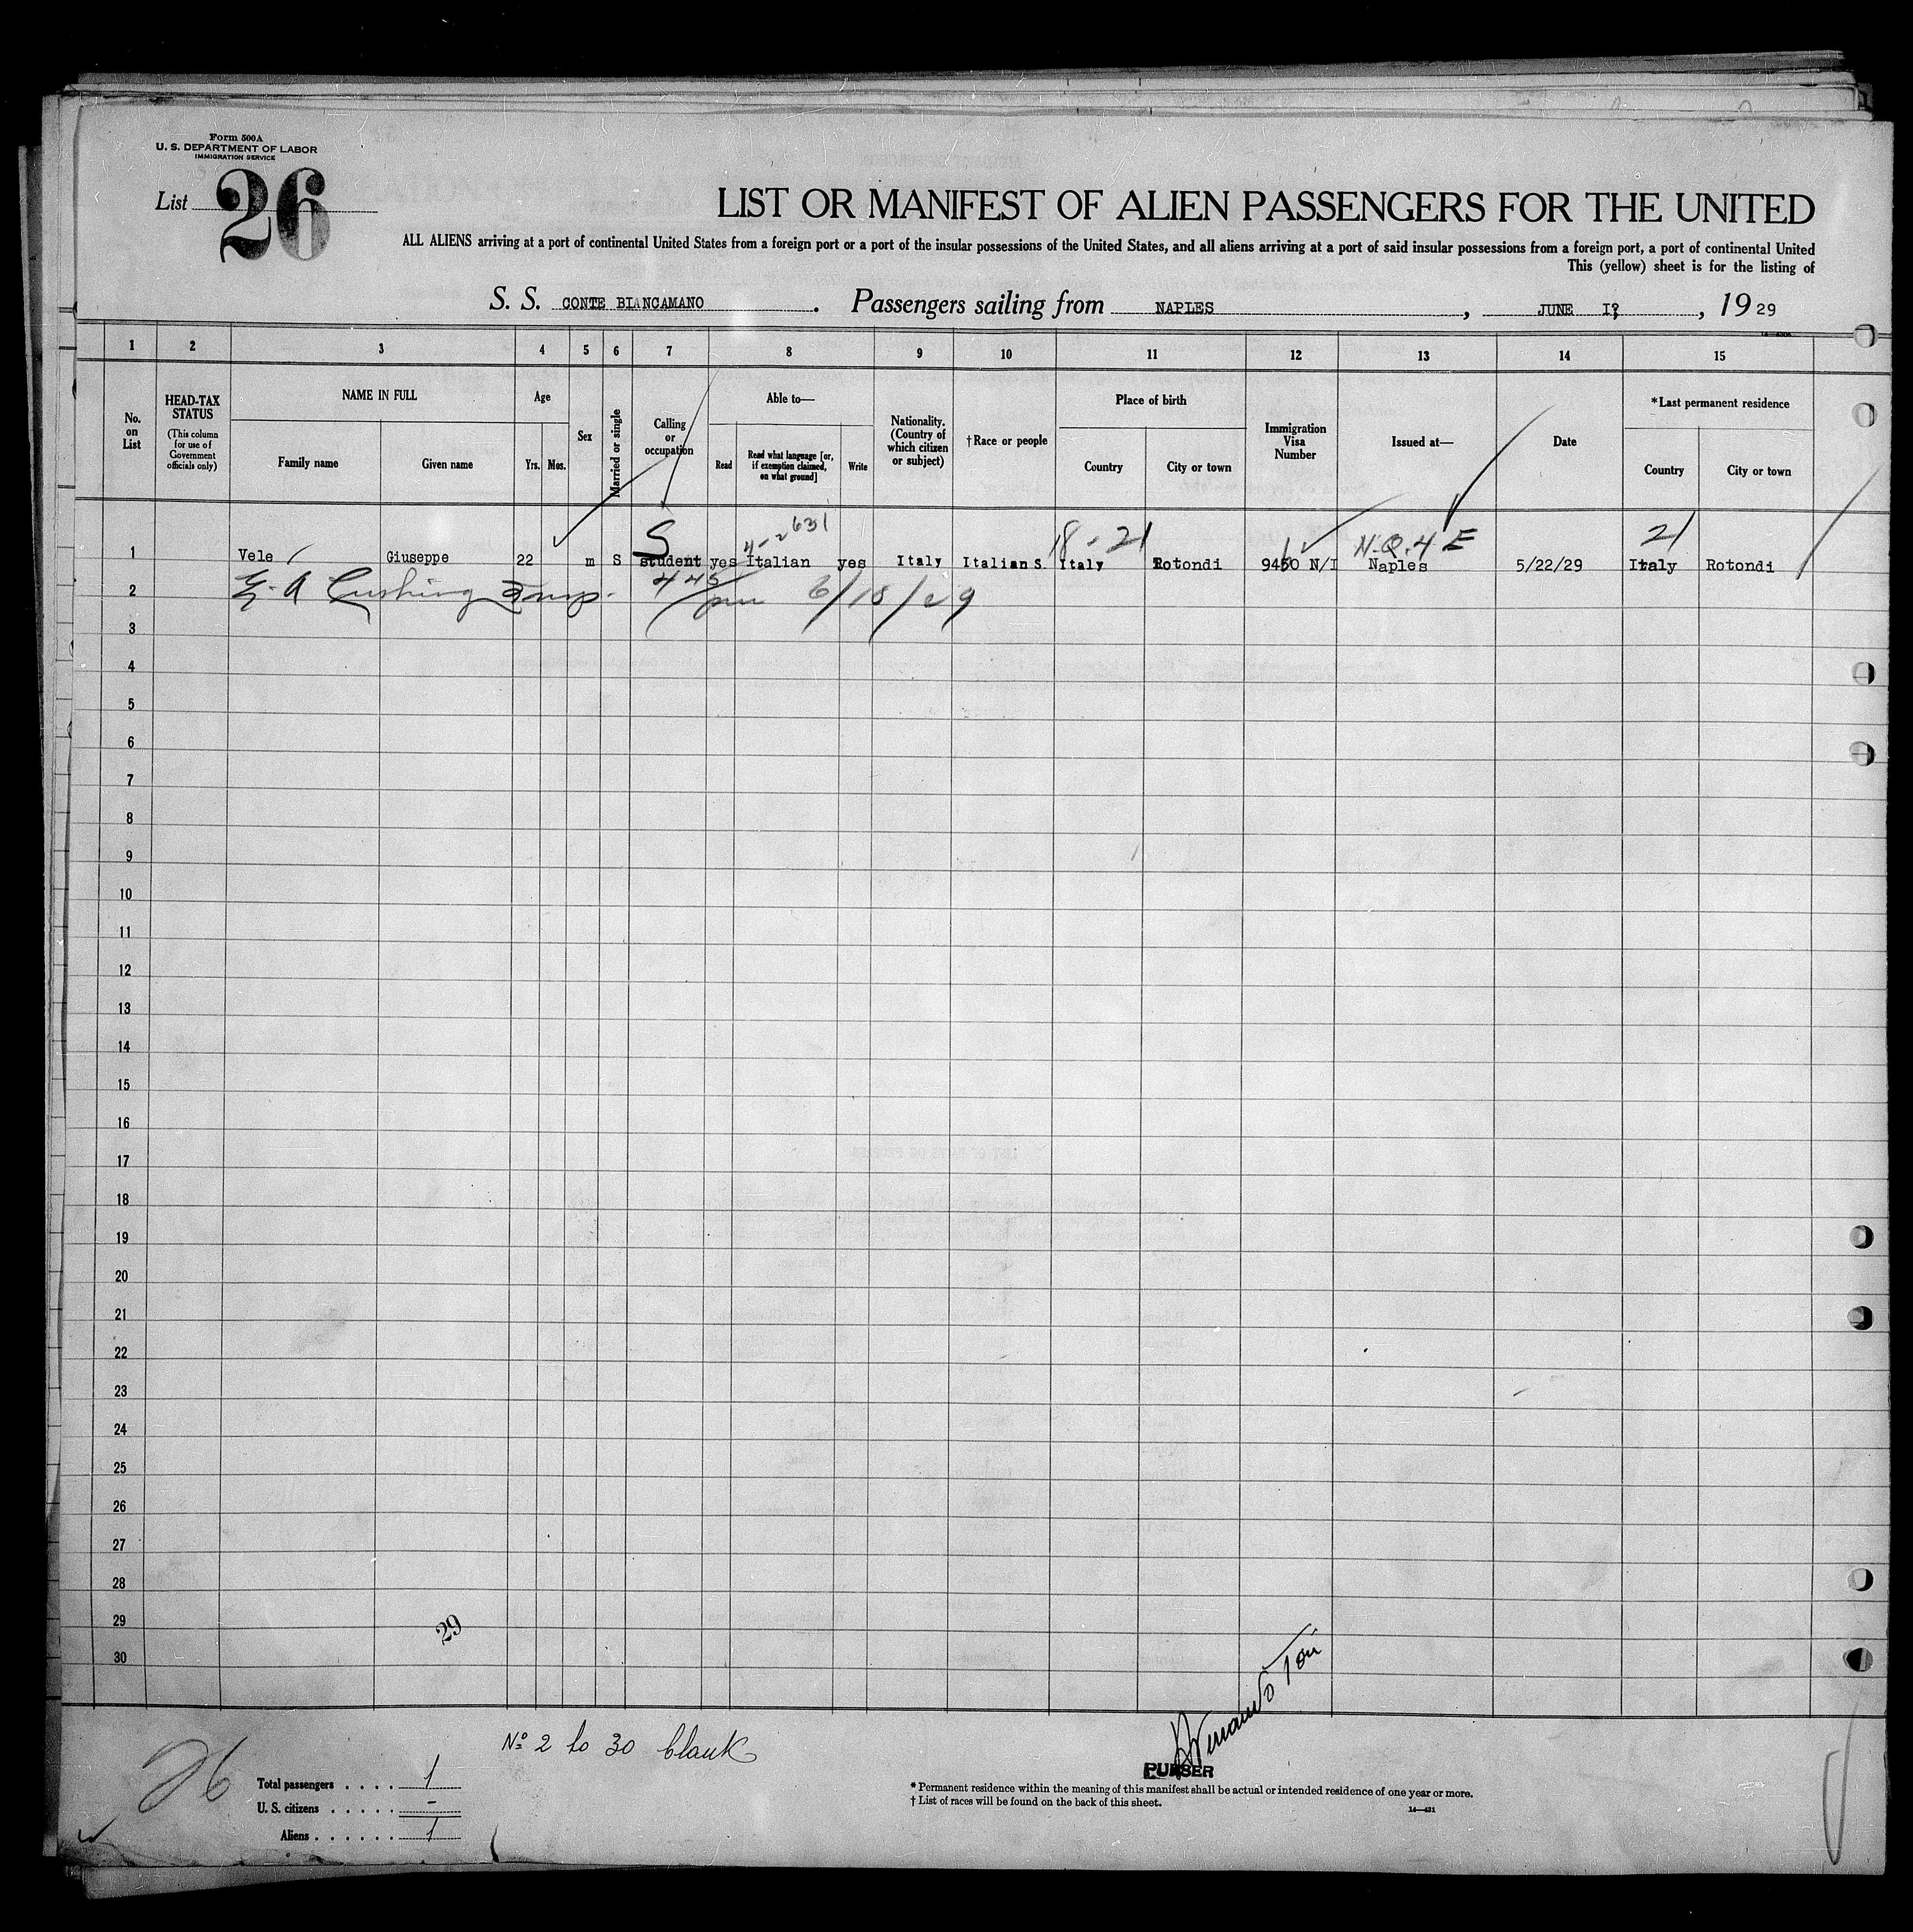 Form 500A
U. S. DEPARTMENT OF LABOR
IMMIGRATION SERVICE
List 26
LIST OR MANIFEST OF ALIEN PASSENGERS FOR THE UNITED
ALL ALIENS arriving at a port of continental United States from a foreign port or a port of the insular possessions of the United States, and all aliens arriving at a port of said insular possessions from a foreign port, a port of continental United
This (yellow) sheet is for the listing of
S. S. CONTE BIANCAMANO. Passengers sailing from NAPLES, JUNE, 1929
1 2 3 4 5 6 7 8 9 10 11 12 13 14 15
No. on List
HEAD-TAX STATUS
(This column for use of Government officials only)
NAME IN FULL
Family name
Given name
Age
Yrs.
Mos.
Sex
Married or single
Calling or occupation
Able to—
Read
Read what language [or, if exemption claimed, on what ground]
Write
Nationality. (Country of which citizen or subject)
†Race or people
Place of birth
Country
City or town
Immigration Visa Number
Issued at—
Date
*Last permanent residence
Country
City or town
S 4-2 631 18-21 N.Q.4 E 21
1 Vele Giuseppe 22 m S student yes Italian yes Italy Italian S. Italy Rotondi N/I Naples 5/22/29 Italy Rotondi
2 E. A Cushing Insp. 445 pm 6/18/29
3
4
5
6
7
8
9
10
11
12
13
14
15
16
17
18
19
20
21
22
23
24
25
26
27
28
29
30
29
26
No 2 to 30 blank
Total passengers . . . . 1
U. S. citizens . . . . . -
Aliens . . . . . . 1
PURSER
* Permanent residence within the meaning of this manifest shall be actual or intended residence of one year or more.
† List of races will be found on the back of this sheet.
14—431